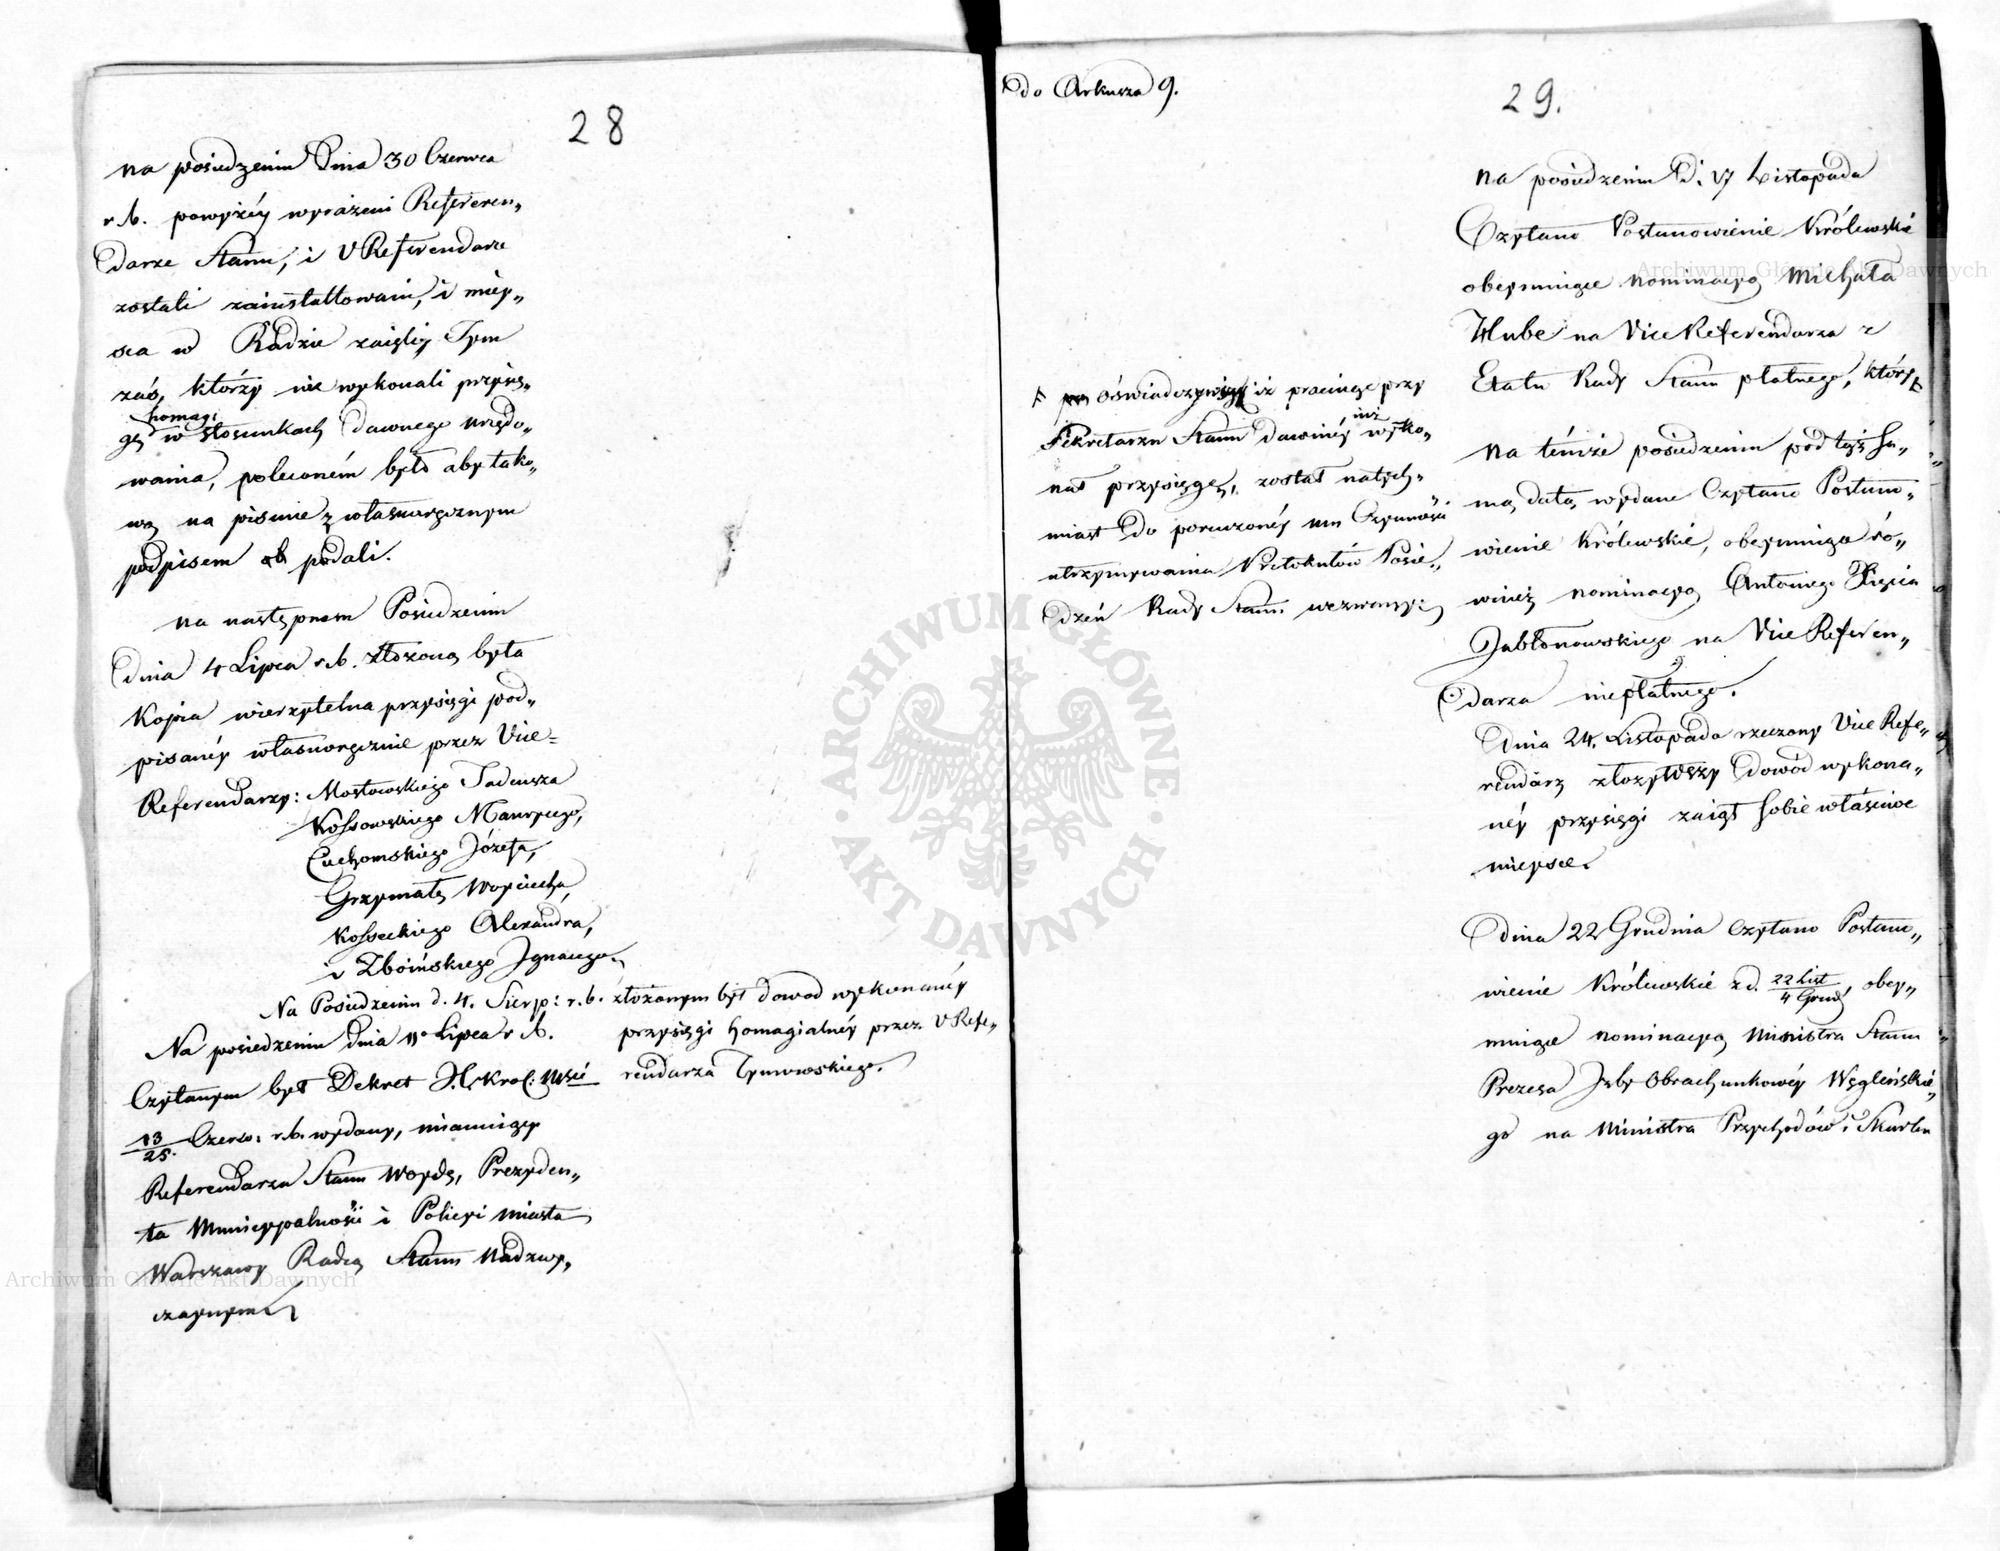 28
na posiedzeniu Dnia 30 Czerwca
r. b. powyżéy wyrażeni Referen„
darze Stanu, i V Referendarze
zostali zainstallowani, i miey„
sca w Radzie zaięli, Tym
zaś, którzy nie wykonali przysię„
homagi
gę w stosunkach dawnego urzędo„
wania, poleconém było aby tako„
wą na pismie z własnoręcznym
podpisem podali.
na następnem Posiedzeniu
dnia 4 Lipca r. b. złożoną była
Kopia wierzytelna przysięgi pod„
pisanéy własnoręcznie przez Vice=
Referendarzy: Mostowskiego Tadeusza
Kossowskiego Maurycego,
Cuchomskiego Józefa,
Grzymałę Woyciecha,
Kosseckiego Alexandra,
i Zboińskiego Ignacego.
Na Posiedzeniu d. 4. Sierp: r. b. złożonym był dowod wykonanéy
przysięgi homagialnéy przez V Refe„
rendarza Tymowskiego.
Na posiedzeniu dnia 11o Lipca r. b.
Czytanym był Dekret J. C. Król: Mści
13/25. Czerw: r. b. wydany, mianuiący
Referendarza Stanu Woydę, Prezyden„
ta Municypalności i Policyi miasta
Warszawy Radcą Stanu Nadzwy„
czaynym
Do Arkusza 9.
29.
na posiedzeniu D. 17 Listopada
Czytano Postanowienie Królewskie
obeymuiące nominacyą Michała
Hube na Vice Referendarza z
Etatu Rady Stanu płatnego, który
oświadczywszy iż pracuiąc przy
Sekretarzu Stanu dawniéy iuż wyko„
nał przysięgę, został natych„
miast do poruczonéy mu Czynności
utrzymywania Protokułów Posie„
dzeń Rady Stanu wezwany.
na témże posiedzeniu pod tąż sa„
mą datą, wydane Czytano Postano„
wienie Królewskie, obeymuiące ró„
wnież nominacyą Antoniego Xięcia
Jabłonowskiego na Vice Referen„
darza niepłatnego.
Dnia 24. Listopada rzeczony Vice Refe„
rendarz złożywszy dowód wykona„
néy przysięgi zaiął sobie właściwe
mieysce.
Dnia 22 Grudnia Czytano Postano„
wienie Królewskie z d. 22 List/4 Grud, obey„
muiące nominacyą Ministra Stanu
Prezesa Izby Obrachunkowéy Węgleńskie„
go na Ministra Przychodów i Skarbu
ARCHIWUM GŁÓWNE AKT DAWNYCH
Archiwum Główne Akt Dawnych
Archiwum Główne Akt Dawnych